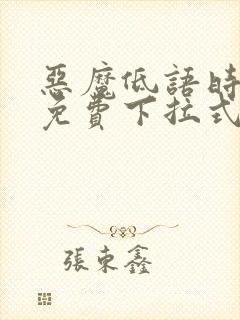 惡魔低語時
免費下拉式
張東鑫